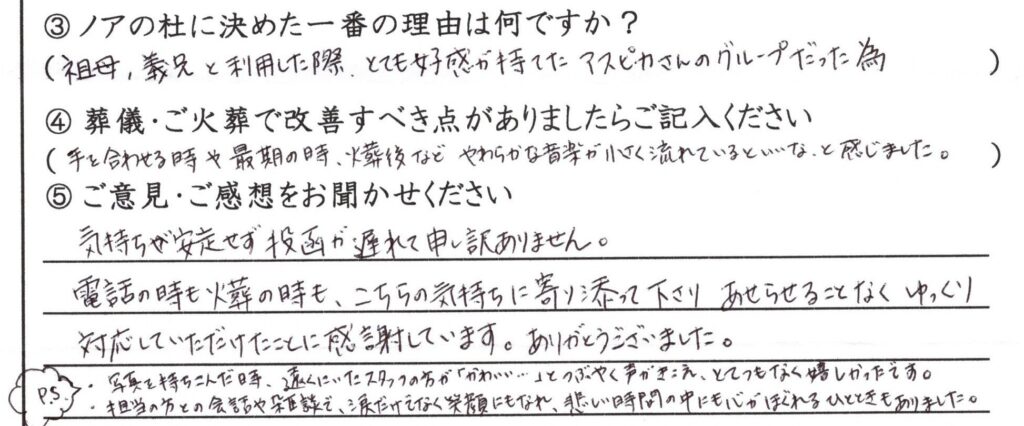 ③ノアの杜に決めた一番の理由は何ですか？
(祖母,義兄と利用した際、とても好感が持てたアスピカさんのグループだった為)
④ 葬儀・ご火葬で改善すべき点がありましたらご記入ください
(手を合わせる時や最期の時、火葬後など やわらかな音楽が小さく流れているといいな、と感じました。)
⑤ ご意見・ご感想をお聞かせください
気持ちが安定せず投函が遅れて申し訳ありません。
電話の時も火葬の時も、こちらの気持ちに寄り添って下さり あせらせることなく ゆっくり
対応していただけたことに感謝しています。ありがとうございました。
P.S.
・写真を持ちこんだ時、遠くにいたスタッフの方が「かわいい…」とつぶやく声がきこえ、とてつもなく嬉しかったです。
・担当の方との会話や雑談で、涙だけでなく笑顔にもなれ、悲しい時間の中にも心がほぐれるひとときもありました。